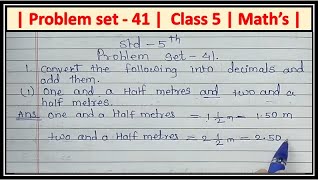 | Problem set - 41 | Class 5 | Math's |
Std - 5th
Problem Set - 41.
1. Convert the following into decimals and
add them.
(1) One and a Half metres and two and a
half metres.
Ans. one and a Half metres = 1 1/2 m = 1.50 m
two and a Half metres = 2 1/2 m = 2.50